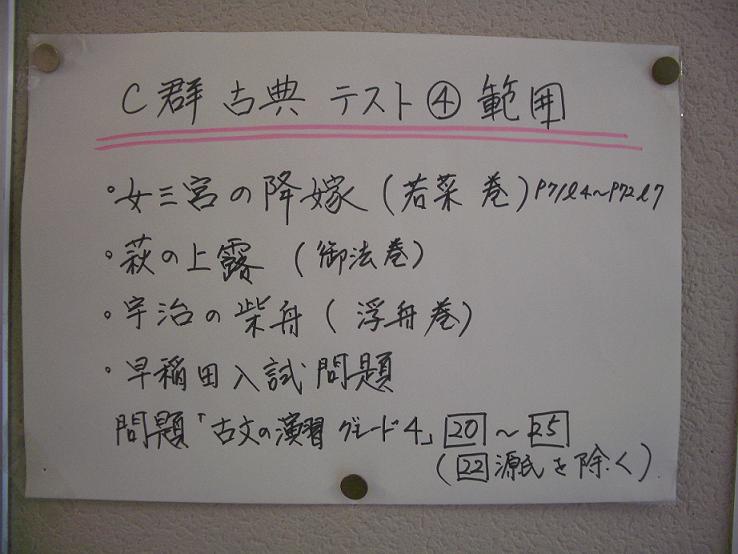 C群 古典 テスト④ 範囲
・女三宮の降嫁(若菜 巻)P71l4〜P72l7
・萩の上露(御法巻)
・宇治の柴舟(浮舟巻)
・早稲田入試問題
問題「古文の演習 グレード4」20〜25
(22源氏を除く)